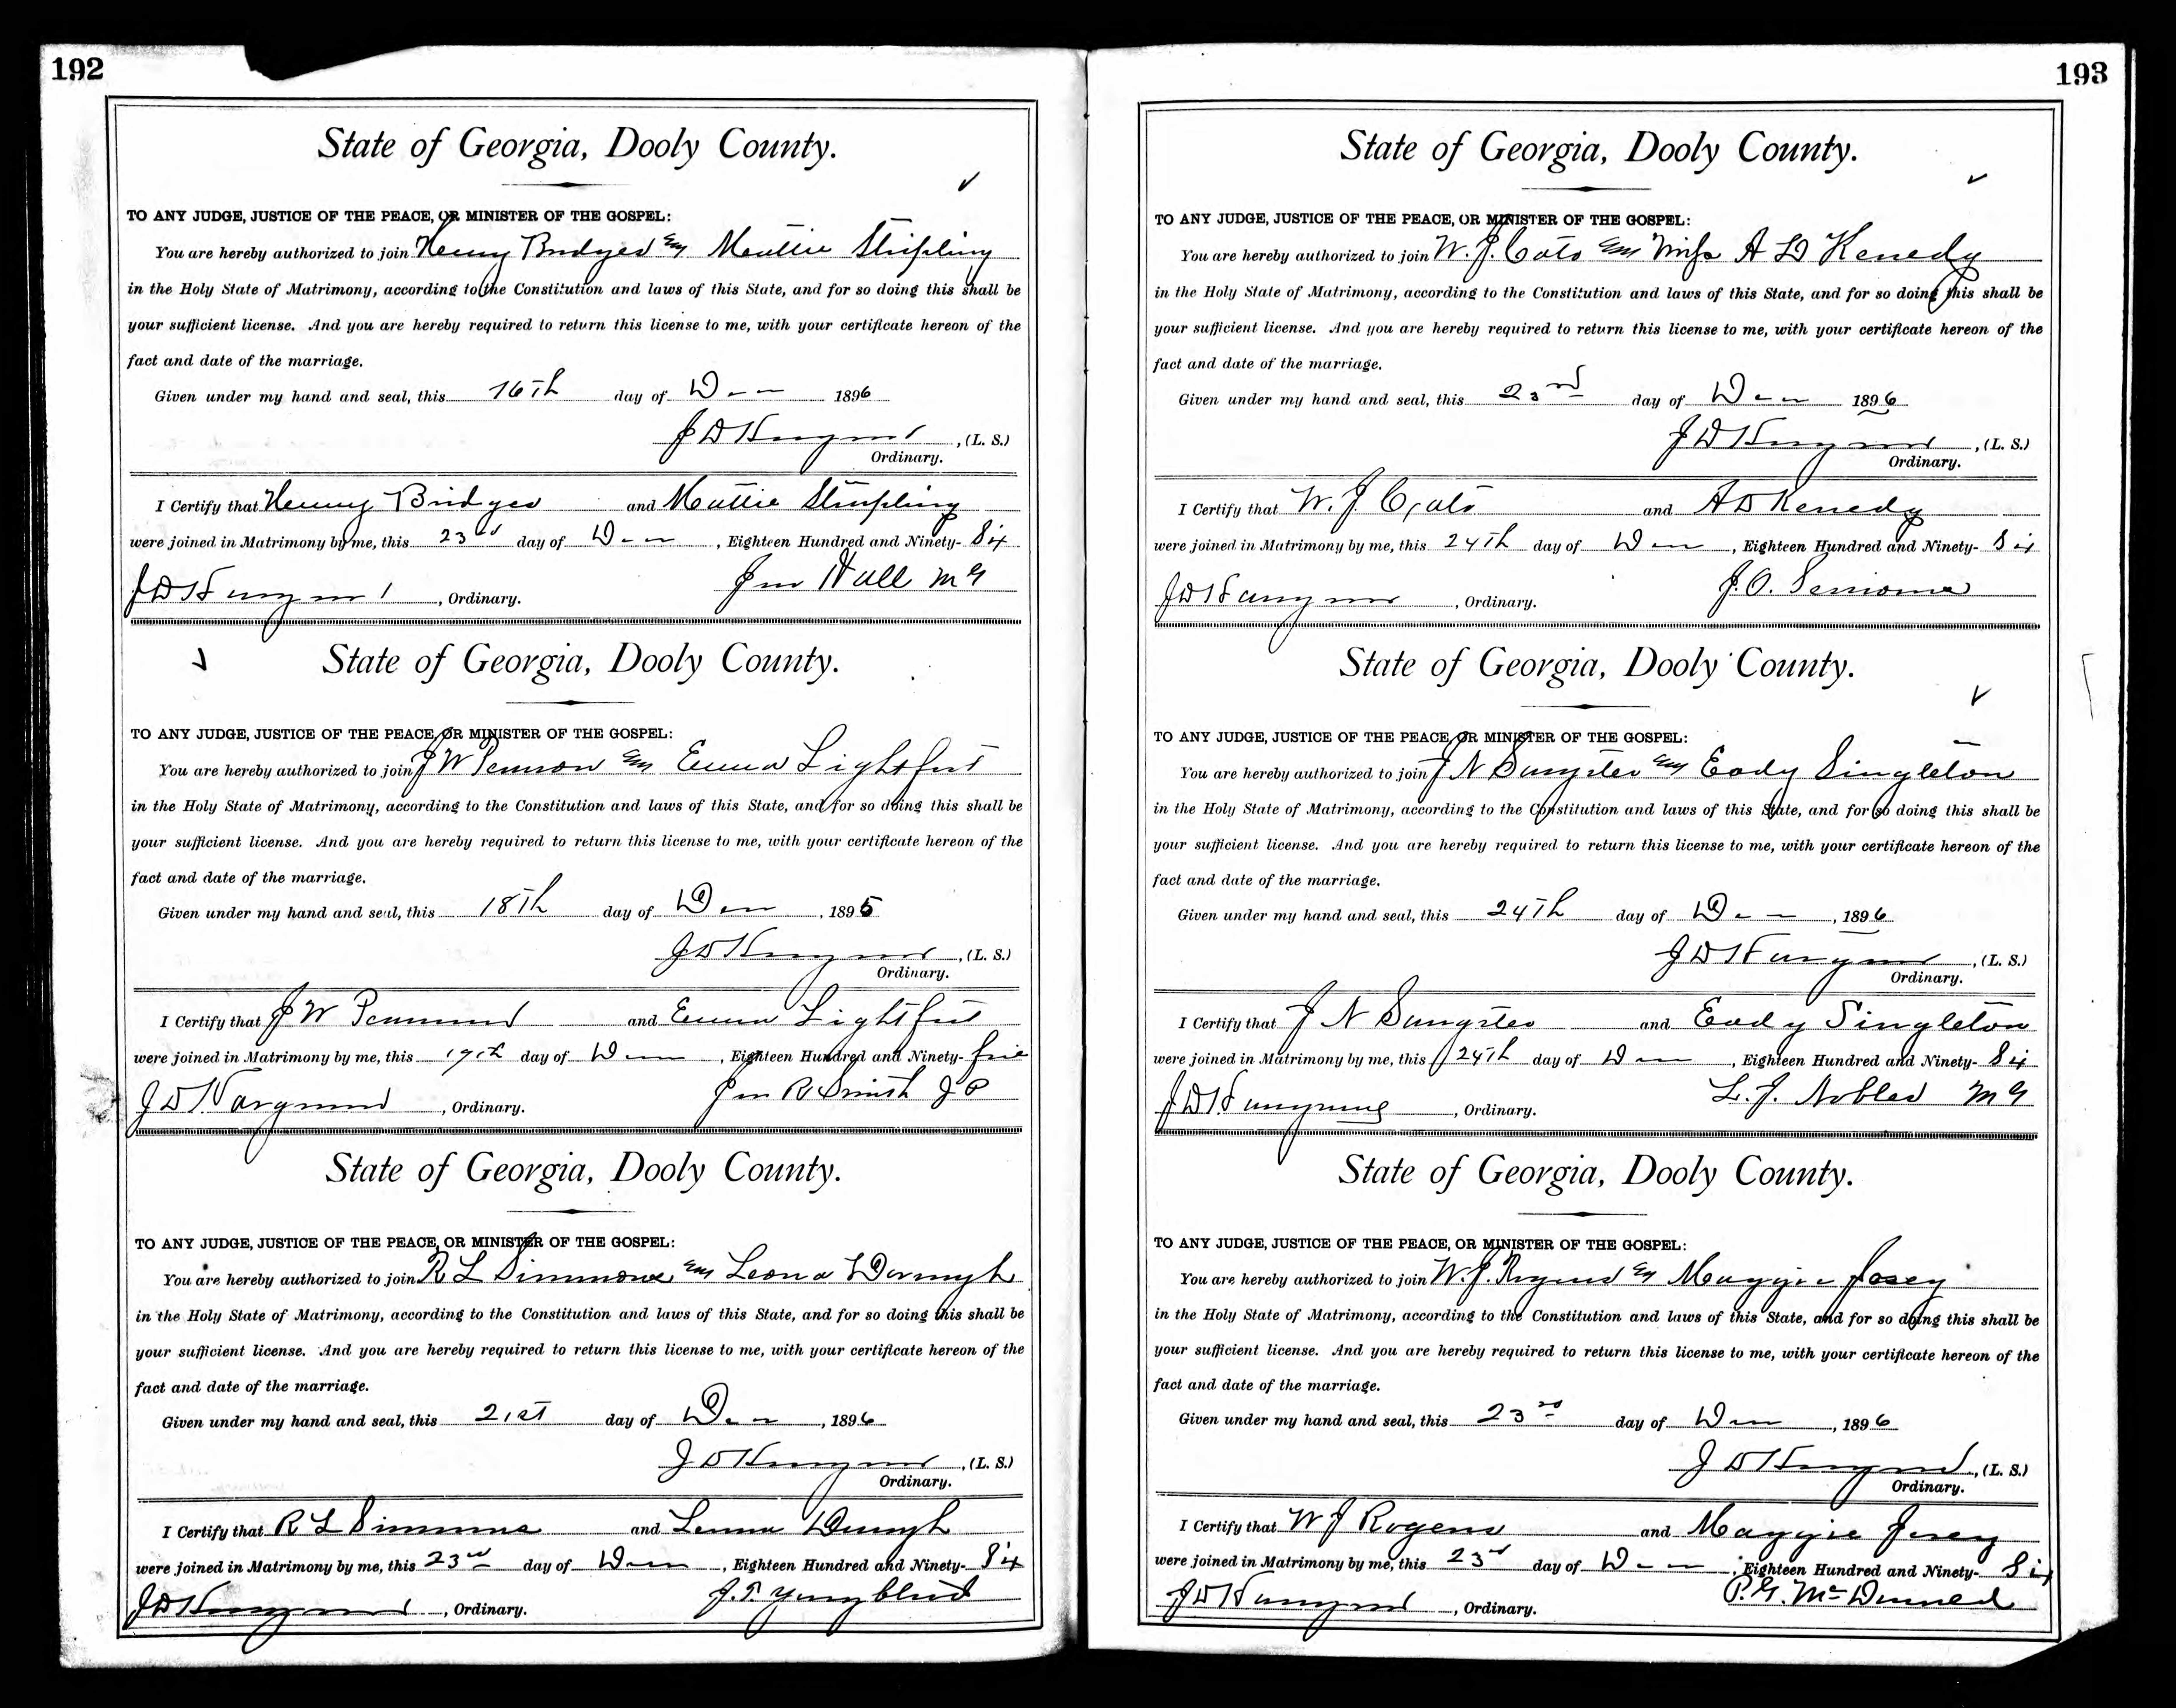 192
State of Georgia, Dooly County.
TO ANY JUDGE, JUSTICE OF THE PEACE, OR MINISTER OF THE GOSPEL:
You are hereby authorized to join Henry Bridges & Mattie Stripling
in the Holy State of Matrimony, according to the Constitution and laws of this State, and for so doing this shall be
your sufficient license. And you are hereby required to return this license to me, with your certificate hereon of the
fact and date of the marriage.
Given under my hand and seal, this 16th day of Dec 1896
J D , (L. S.)
Ordinary.
I Certify that Henry Bridges and Mattie Stripling
were joined in Matrimony by me, this 23rd day of Dec , Eighteen Hundred and Ninety- Six
Jno Hall M G
J D , Ordinary.
State of Georgia, Dooly County.
TO ANY JUDGE, JUSTICE OF THE PEACE, OR MINISTER OF THE GOSPEL:
You are hereby authorized to join J W & Emma Lightfoot
in the Holy State of Matrimony, according to the Constitution and laws of this State, and for so doing this shall be
your sufficient license. And you are hereby required to return this license to me, with your certificate hereon of the
fact and date of the marriage.
Given under my hand and seal, this 18th day of Dec , 1895
J D , (L. S.)
Ordinary.
I Certify that J W and Emma Lightfoot
were joined in Matrimony by me, this 19th day of Dec , Eighteen Hundred and Ninety- five
Jno R Smith J P
J D , Ordinary.
State of Georgia, Dooly County.
TO ANY JUDGE, JUSTICE OF THE PEACE, OR MINISTER OF THE GOSPEL:
You are hereby authorized to join R L Simmons & Leona
in the Holy State of Matrimony, according to the Constitution and laws of this State, and for so doing this shall be
your sufficient license. And you are hereby required to return this license to me, with your certificate hereon of the
fact and date of the marriage.
Given under my hand and seal, this 21st day of Dec , 1896
J D , (L. S.)
Ordinary.
I Certify that R L Simmons and Leona
were joined in Matrimony by me, this 23rd day of Dec , Eighteen Hundred and Ninety- Six
J. T. Yungblud
J D , Ordinary.
193
State of Georgia, Dooly County.
TO ANY JUDGE, JUSTICE OF THE PEACE, OR MINISTER OF THE GOSPEL:
You are hereby authorized to join W. J. Cato & Miss A D Kenedy
in the Holy State of Matrimony, according to the Constitution and laws of this State, and for so doing this shall be
your sufficient license. And you are hereby required to return this license to me, with your certificate hereon of the
fact and date of the marriage.
Given under my hand and seal, this 23rd day of Dec 1896
J D , (L. S.)
Ordinary.
I Certify that W. J. Cato and A D Kenedy
were joined in Matrimony by me, this 24th day of Dec , Eighteen Hundred and Ninety- Six
J. O.
J D , Ordinary.
State of Georgia, Dooly County.
TO ANY JUDGE, JUSTICE OF THE PEACE, OR MINISTER OF THE GOSPEL:
You are hereby authorized to join J N Sangster & Eady Singleton
in the Holy State of Matrimony, according to the Constitution and laws of this State, and for so doing this shall be
your sufficient license. And you are hereby required to return this license to me, with your certificate hereon of the
fact and date of the marriage.
Given under my hand and seal, this 24th day of Dec , 1896
J D , (L. S.)
Ordinary.
I Certify that J N Sangster and Eady Singleton
were joined in Matrimony by me, this 24th day of Dec , Eighteen Hundred and Ninety- Six
L. J. Nobles M G
J D , Ordinary.
State of Georgia, Dooly County.
TO ANY JUDGE, JUSTICE OF THE PEACE, OR MINISTER OF THE GOSPEL:
You are hereby authorized to join W. J. Rogers & Maggie Josey
in the Holy State of Matrimony, according to the Constitution and laws of this State, and for so doing this shall be
your sufficient license. And you are hereby required to return this license to me, with your certificate hereon of the
fact and date of the marriage.
Given under my hand and seal, this 23rd day of Dec , 1896
J D , (L. S.)
Ordinary.
I Certify that W J Rogers and Maggie Josey
were joined in Matrimony by me, this 23rd day of Dec , Eighteen Hundred and Ninety- Six
P. G.
J D , Ordinary.